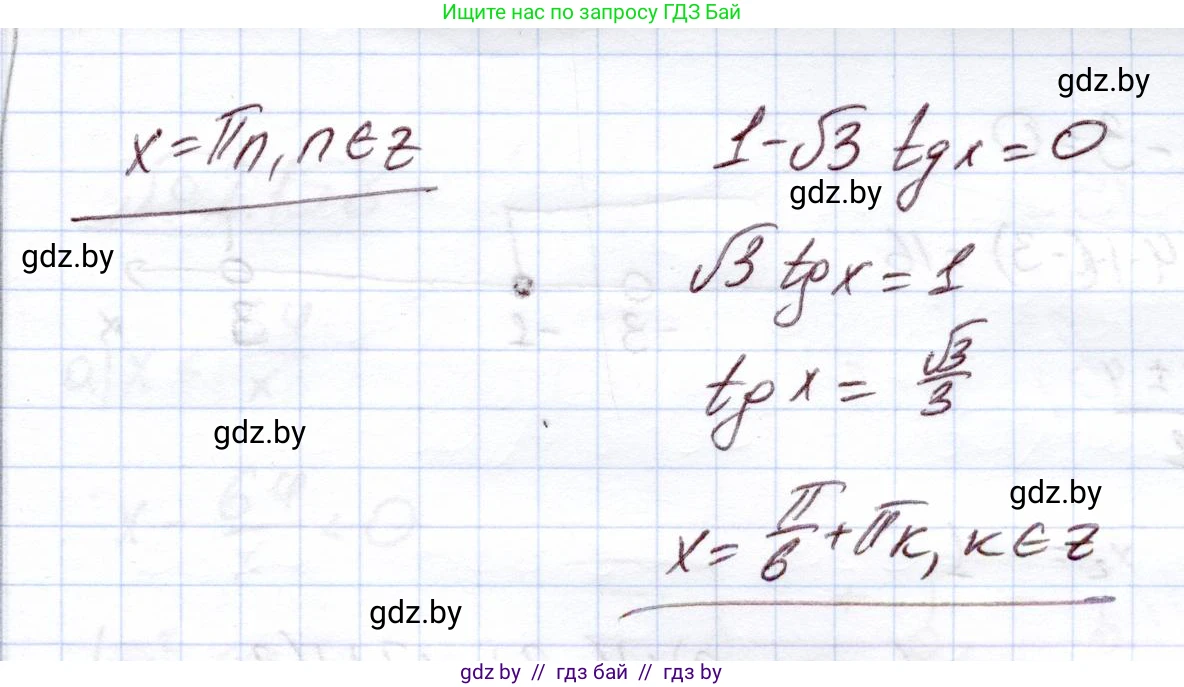 Ищите нас по запросу ГДЗ Бай
gdz.by
x = πn, n ∈ z
1 - √3 tg x = 0
gdz.by
gdz.by
√3 tg x = 1
tg x = √3/3
gdz.by
gdz.by
x = π/6 + πк, к ∈ z
gdz.by
gdz.by // гдз бай // гдз by